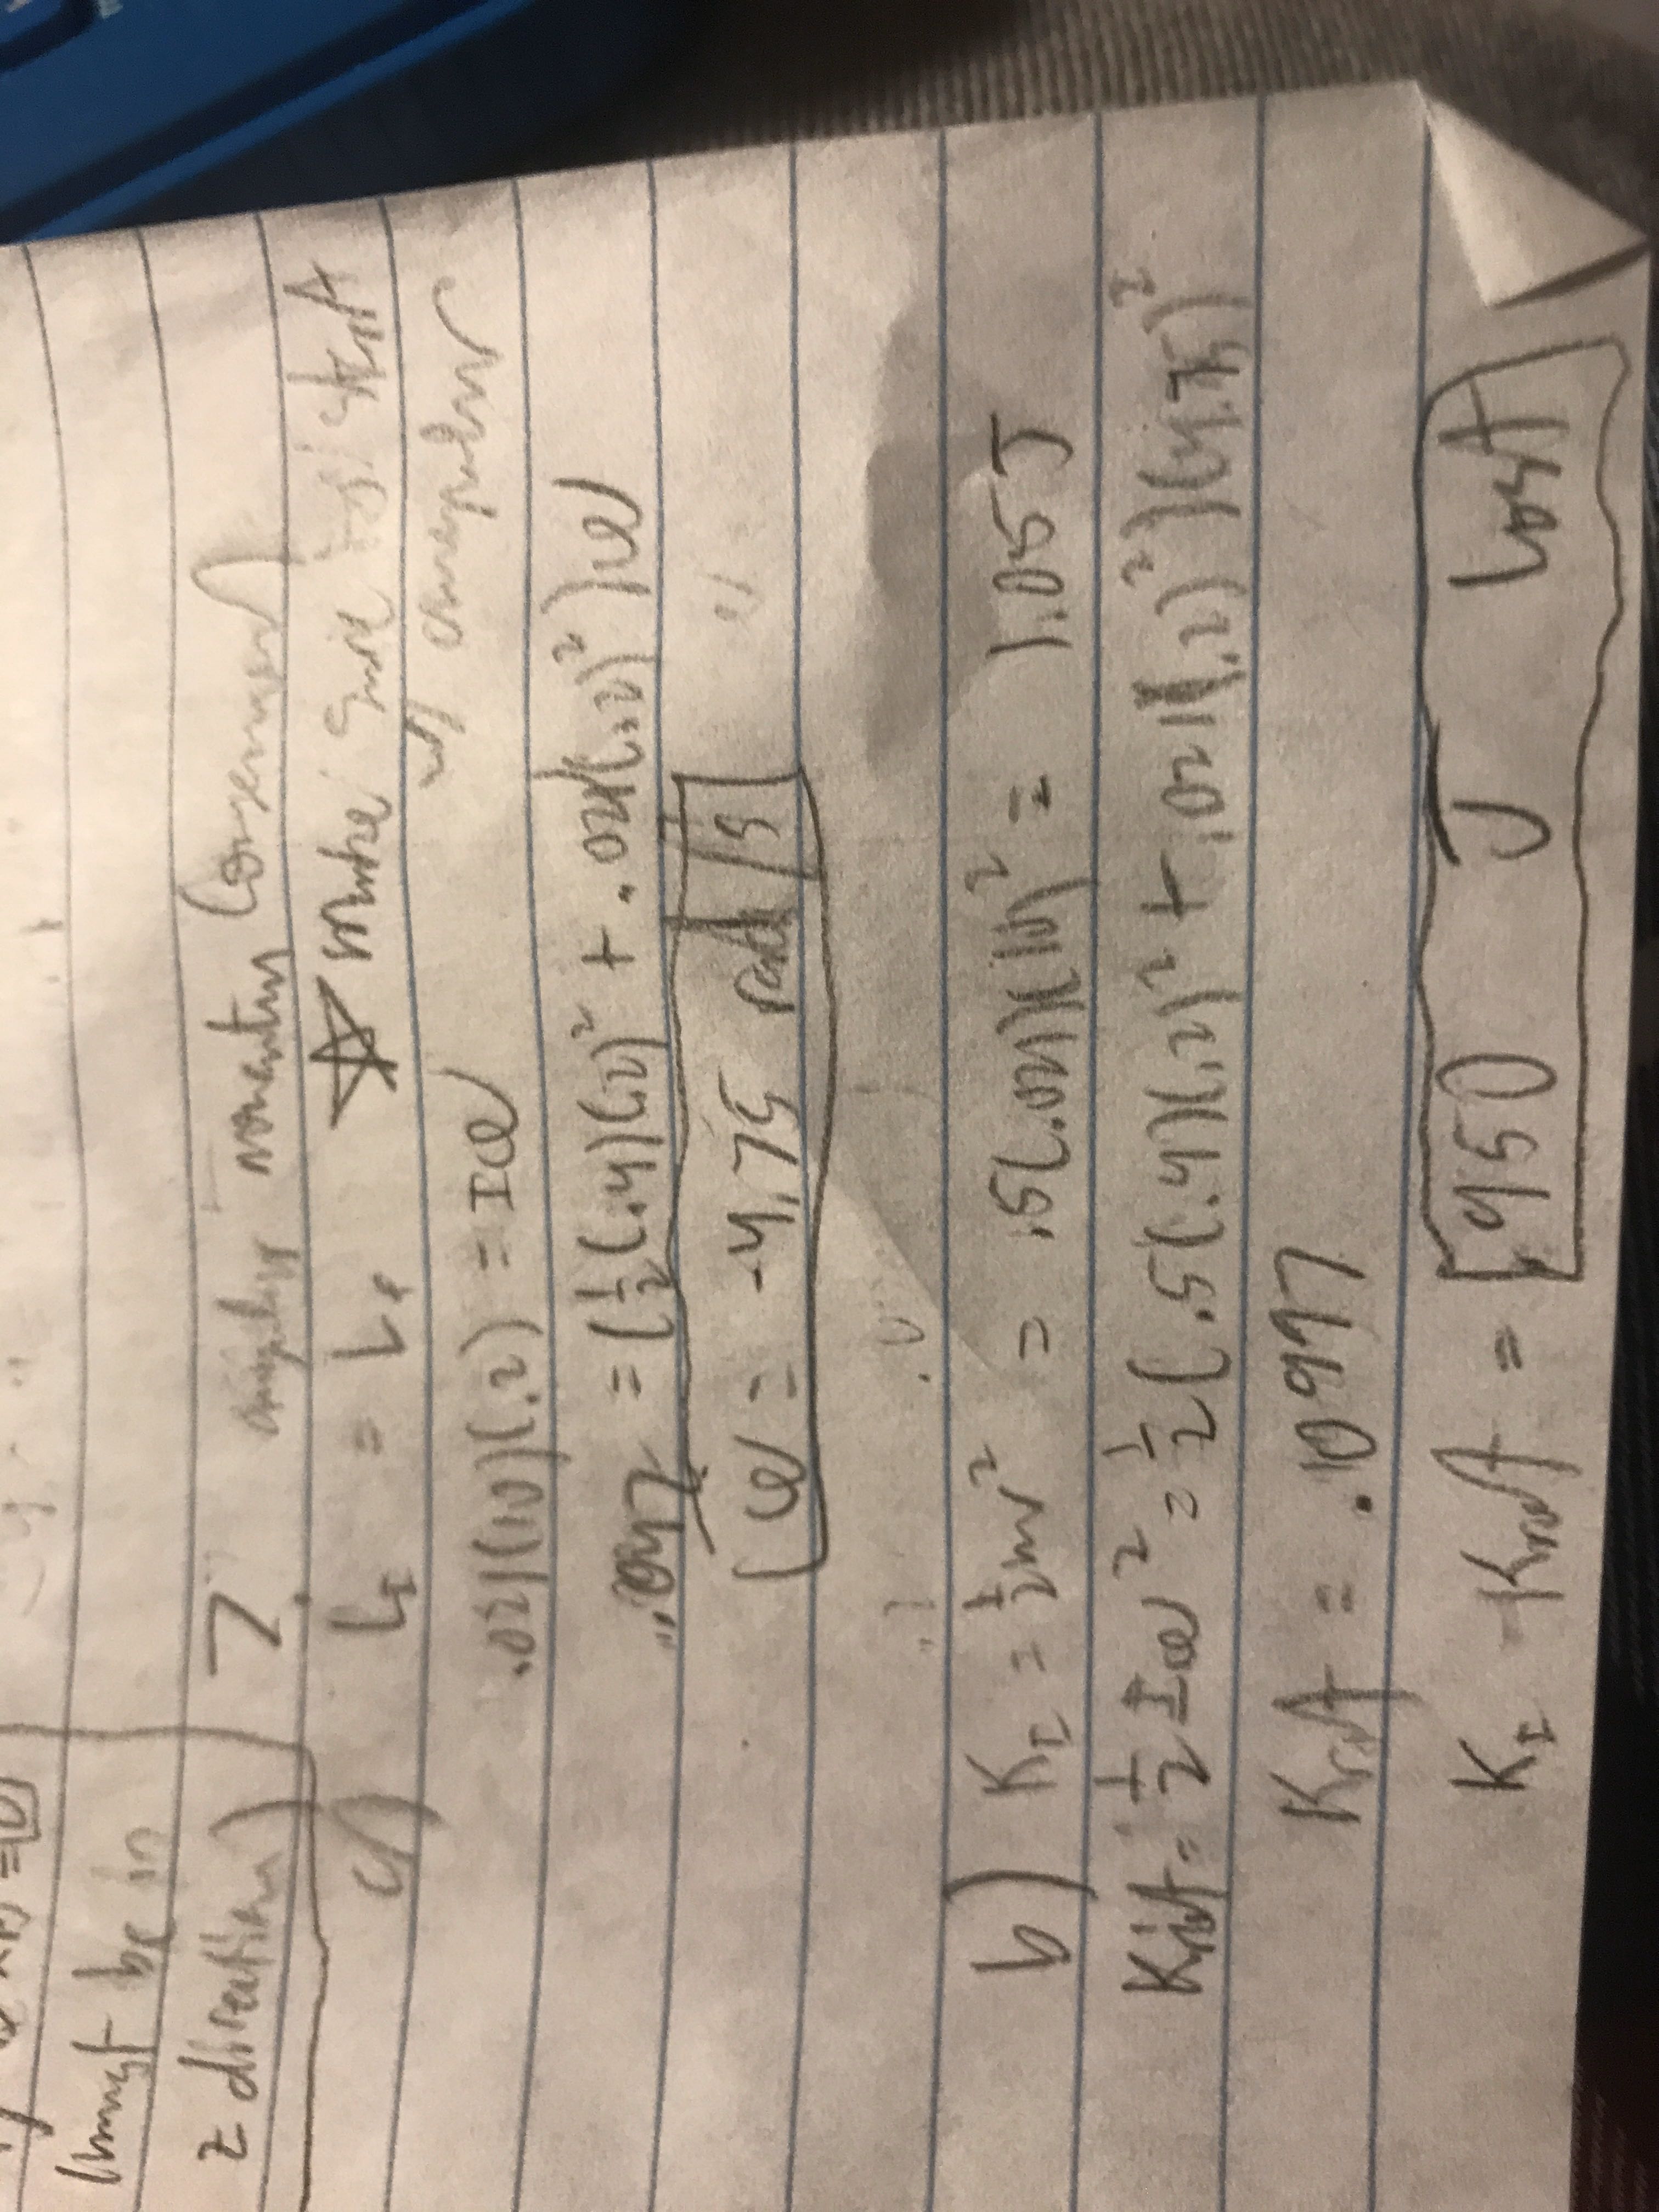 (must be in
z direction)
7. angular momentum conservation
a) L_I = L_f ☆ Make sure to start
w/ angular
.021(10)(.2) = Iω
.042 = (1/2(.4)(.2)² + .021(.2)²)ω
ω = -4.75 rad/s
b) K_I = 1/2mv² = .5(.021)(10)² = 1.05 J
Krot = 1/2 Iω² = 1/2(.5(.4)(.2)² + .021(.2)²)(4.75)²
Krot = .10997
K_I - Krot = .950 J lost